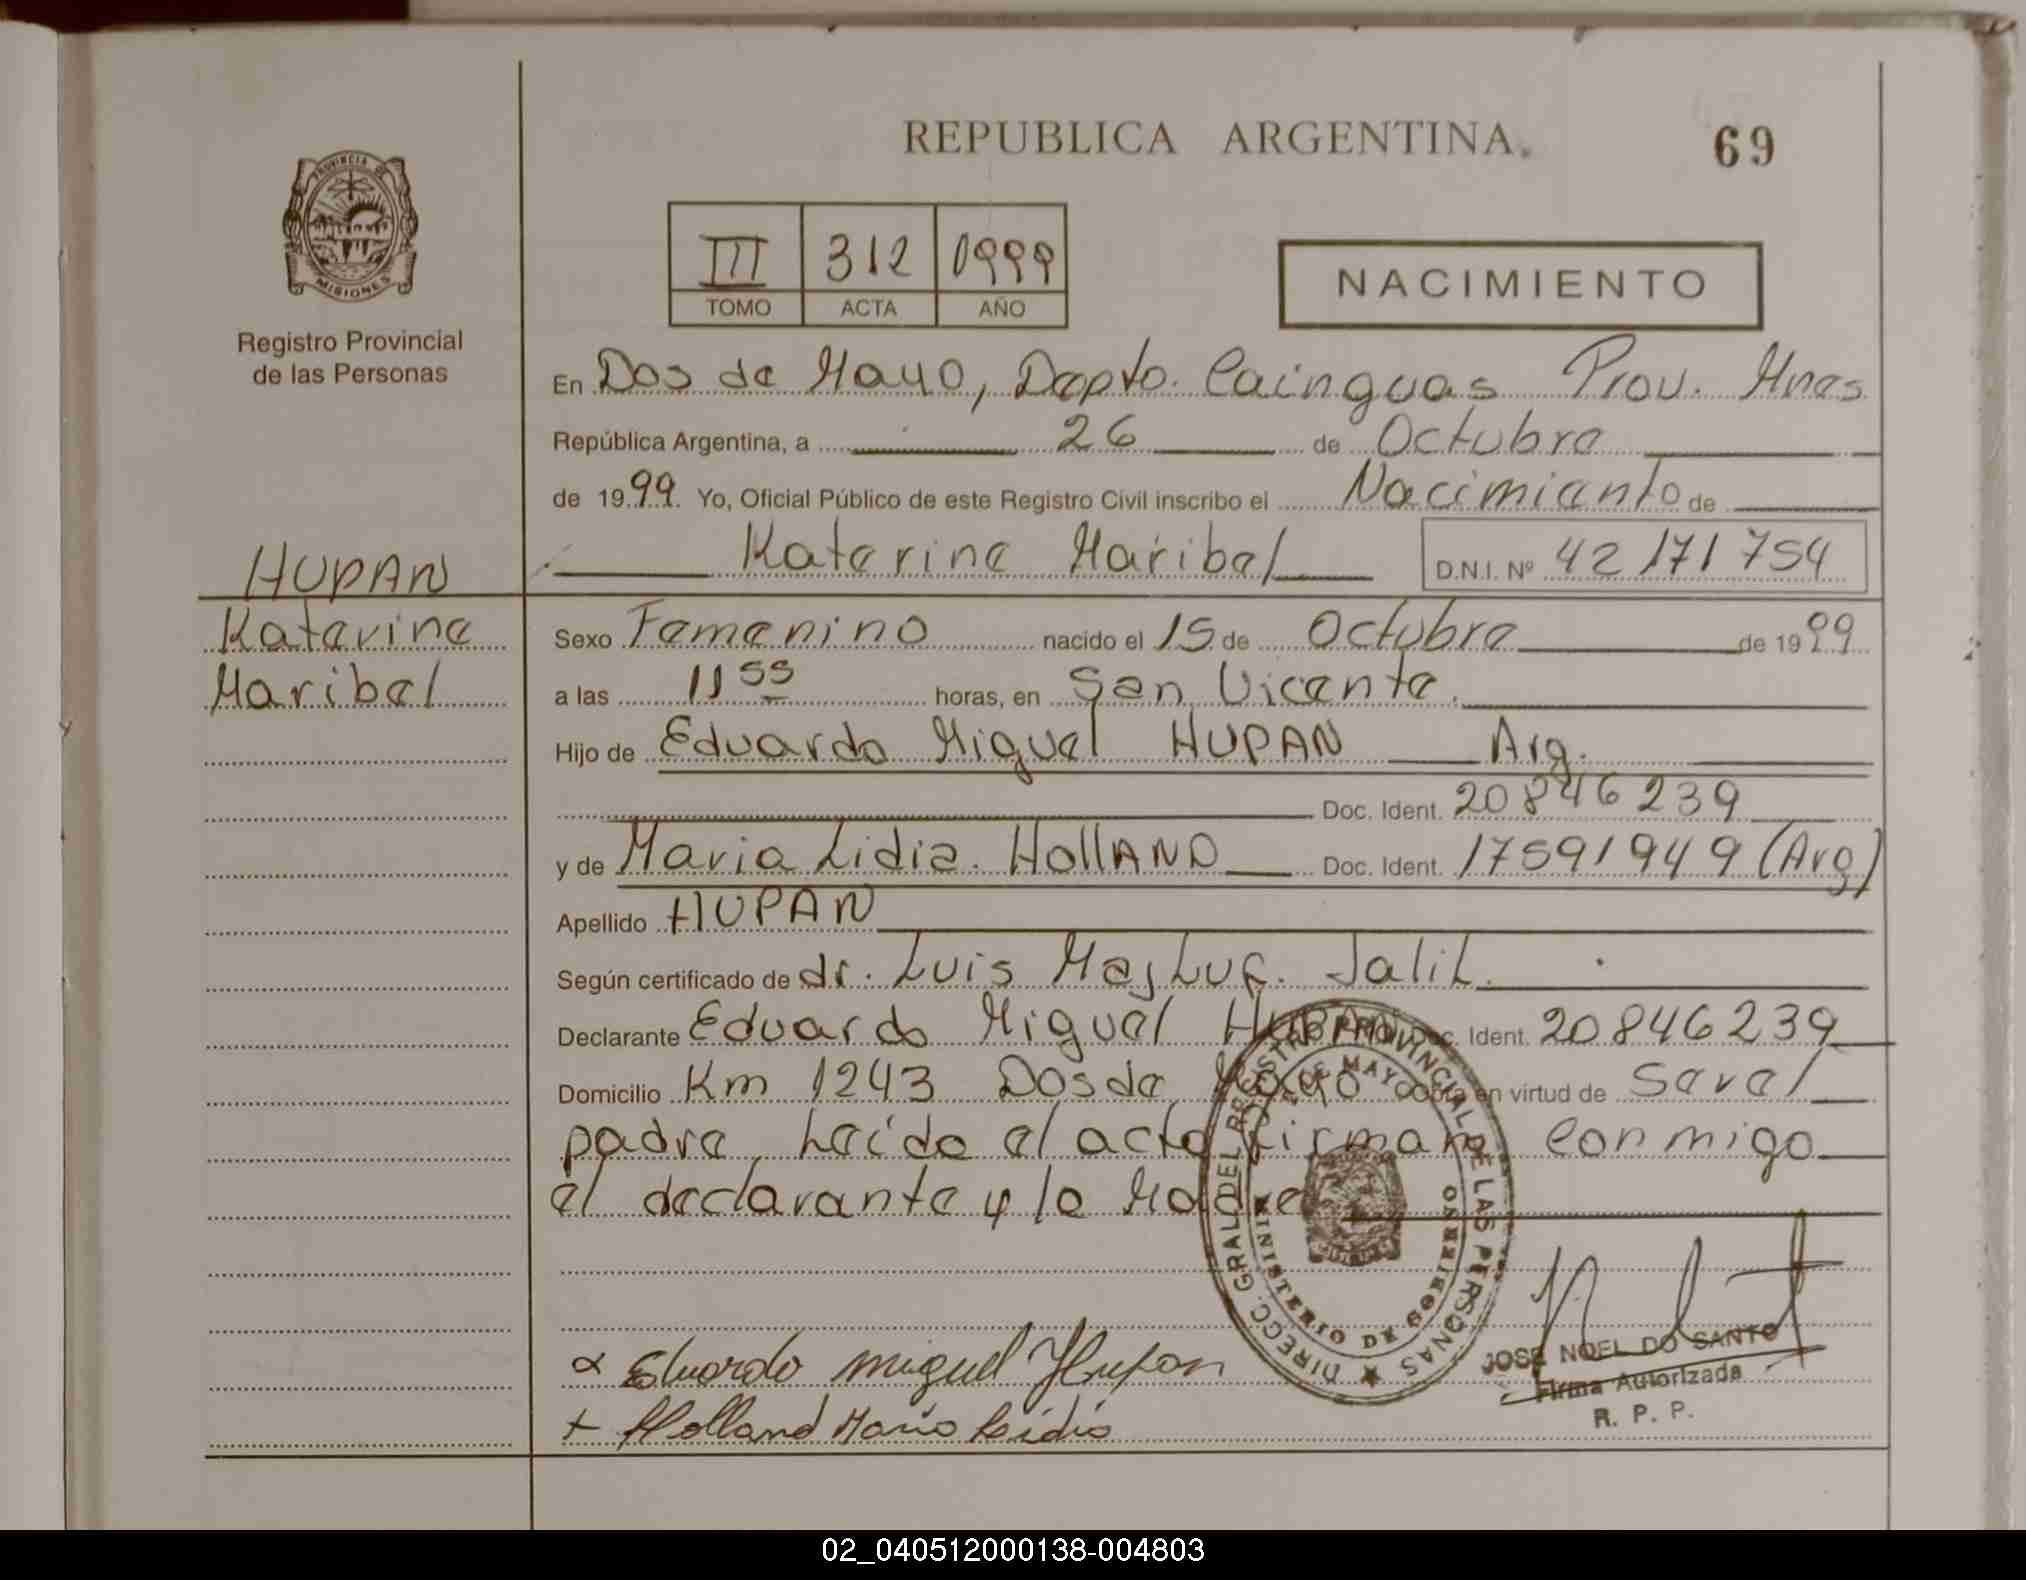 REPUBLICA ARGENTINA.
69
PROVINCIA DE
MISIONES
Registro Provincial
de las Personas
III 312 1999
TOMO ACTA AÑO
NACIMIENTO
En Dos de Mayo, Depto. Cainguas Prov. Mnes
República Argentina, a 26 de Octubre
de 1999. Yo, Oficial Público de este Registro Civil inscribo el Nacimiento de
Katerine Maribel D.N.I. Nº 42171754
HUPAN
Katerine
Maribel
Sexo Femenino nacido el 15 de Octubre de 1999
a las 11 55 horas, en San Vicente.
Hijo de Eduardo Miguel HUPAN Arg.
Doc. Ident. 20846239
y de Maria Lidia. HollAND Doc. Ident. 17591949 (Arg)
Apellido HUPAN
Según certificado de dr. Luis Majluf. Jalil.
Declarante Eduardo Miguel HUPAN Doc. Ident. 20846239
Domicilio Km 1243 Dos de Mayo Obra en virtud de Serel
padre Leido el acto firman conmigo
el declarante y la Madre
DIRECC. GRAL DEL REGISTRO PROVINCIAL DE LAS PERSONAS
2 DE MAYO
MINISTERIO DE GOBIERNO
Eduardo Miguel Hupan
+ Holland Maria Lidia
JOSE NOEL DO SANTO
Firma Autorizada
R. P. P.
02_040512000138-004803